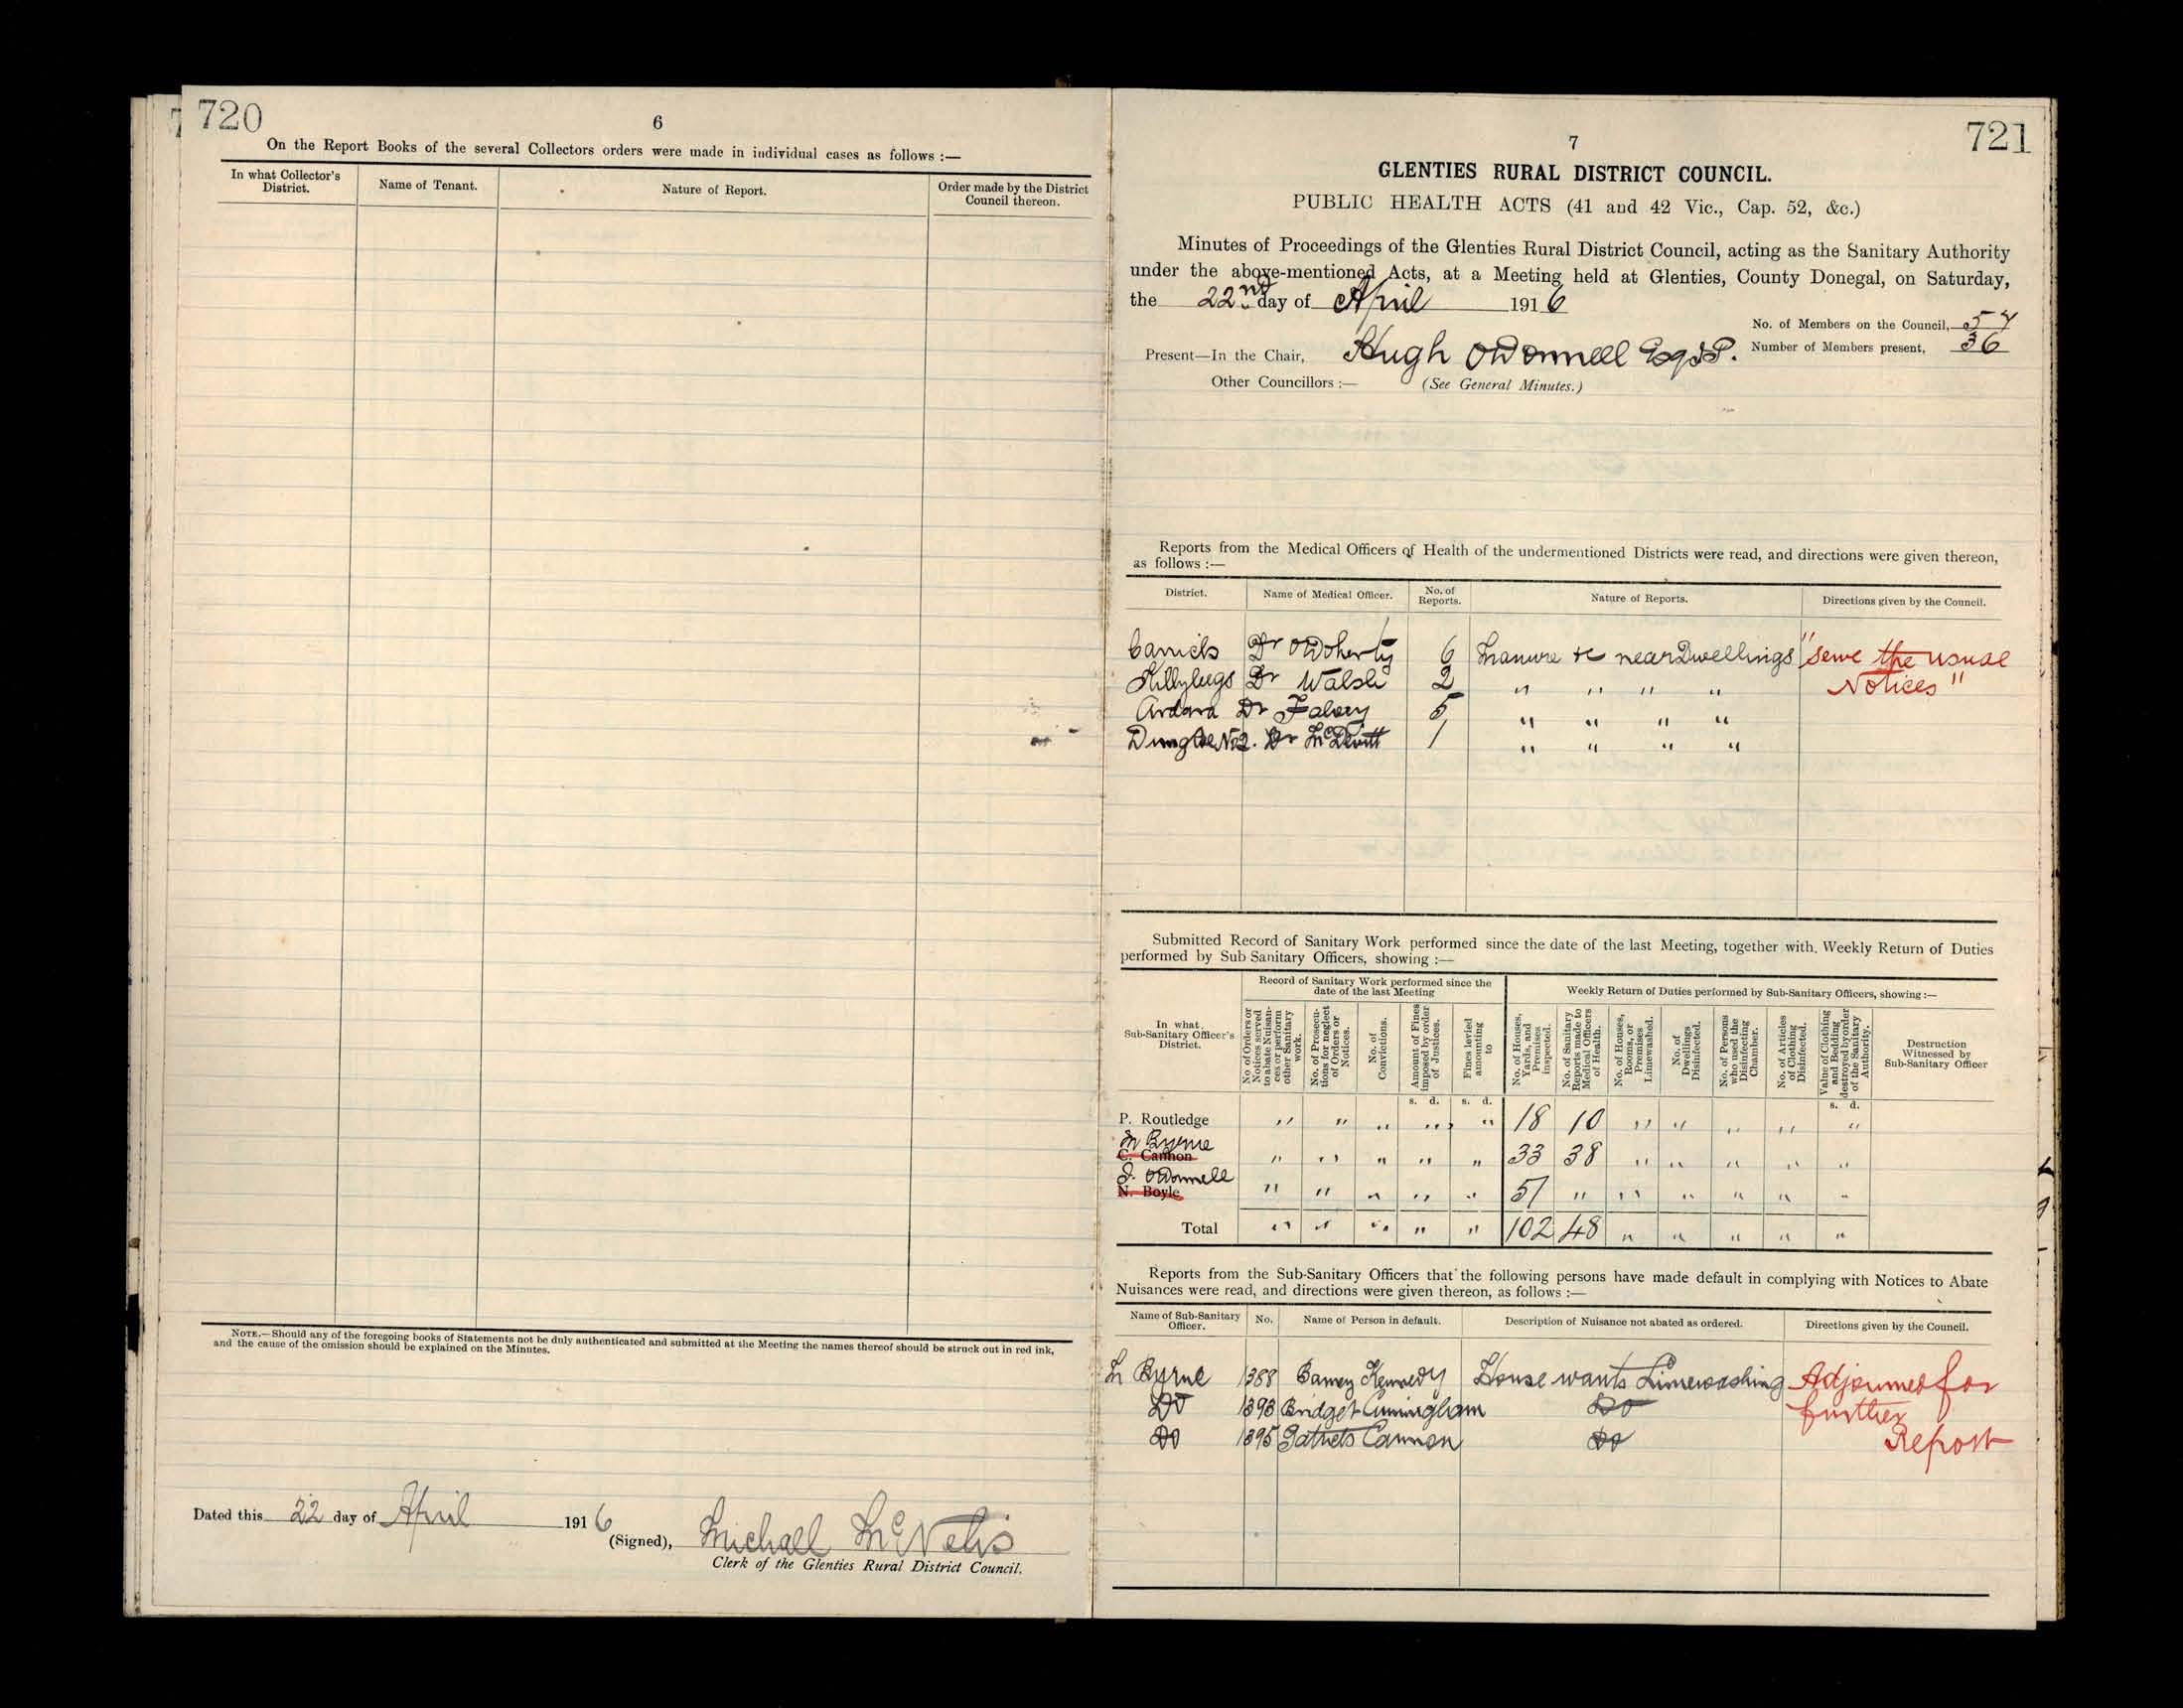 720
6
On the Report Books of the several Collectors orders were made in individual cases as follows :—
In what Collector's District.
Name of Tenant.
Nature of Report.
Order made by the District Council thereon.
NOTE.—Should any of the foregoing books of Statements not be duly authenticated and submitted at the Meeting the names thereof should be struck out in red ink,
and the cause of the omission should be explained on the Minutes.
Dated this 22 day of April 1916
(Signed), Michael McNelis
Clerk of the Glenties Rural District Council.
721
7
GLENTIES RURAL DISTRICT COUNCIL.
PUBLIC HEALTH ACTS (41 and 42 Vic., Cap. 52, &c.)
Minutes of Proceedings of the Glenties Rural District Council, acting as the Sanitary Authority
under the above-mentioned Acts, at a Meeting held at Glenties, County Donegal, on Saturday,
the 22nd day of April 1916
No. of Members on the Council, 54
Present—In the Chair, Hugh O'Donnell Esq J.P. Number of Members present, 36
Other Councillors :— (See General Minutes.)
Reports from the Medical Officers of Health of the undermentioned Districts were read, and directions were given thereon,
as follows :—
District. Name of Medical Officer. No. of Reports. Nature of Reports. Directions given by the Council.
Carrick Dr O'Doherty 6 Manure &c near Dwellings "Serve the usual
Killybegs Dr Walsh 2 " " " " Notices"
Ardara Dr Falvey 5 " " " "
Dungloe No 2. Dr McDevitt 1 " " " "
Submitted Record of Sanitary Work performed since the date of the last Meeting, together with. Weekly Return of Duties
performed by Sub Sanitary Officers, showing :—
In what Sub-Sanitary Officer's District.
Record of Sanitary Work performed since the date of the last Meeting
Weekly Return of Duties performed by Sub-Sanitary Officers, showing :—
No of Orders or Notices served to abate Nuisances or perform other Sanitary work.
No. of Prosecutions for neglect of Orders or Notices.
No. of Convictions.
Amount of Fines imposed by order of Justices.
Fines levied amounting to
No. of Houses, Yards, and Premises inspected.
No. of Sanitary Reports made to Medical Officers of Health.
No. of Houses, Rooms, or Premises Limewashed.
No. of Dwellings Disinfected.
No. of Persons who used the Disinfecting Chamber.
No. of Articles of Clothing Disinfected.
Value of Clothing and Bedding destroyed by order of the Sanitary Authority.
Destruction Witnessed by Sub-Sanitary Officer
s. d. s. d. s. d.
P. Routledge " " " " " 18 10 " " " " "
M Byrne
C. Cannon " " " " " 33 38 " " " " "
J. O'Donnell
N. Boyle " " " " " 51 " " " " " "
Total " " " " " 102 48 " " " " "
Reports from the Sub-Sanitary Officers that the following persons have made default in complying with Notices to Abate
Nuisances were read, and directions were given thereon, as follows :—
Name of Sub-Sanitary Officer. No. Name of Person in default. Description of Nuisance not abated as ordered. Directions given by the Council.
M Byrne 1388 Barney Kennedy House wants Limewashing Adjourned for
Do 1393 Bridget Cunningham Do further
Do 1395 Patrick Cannon Do Report